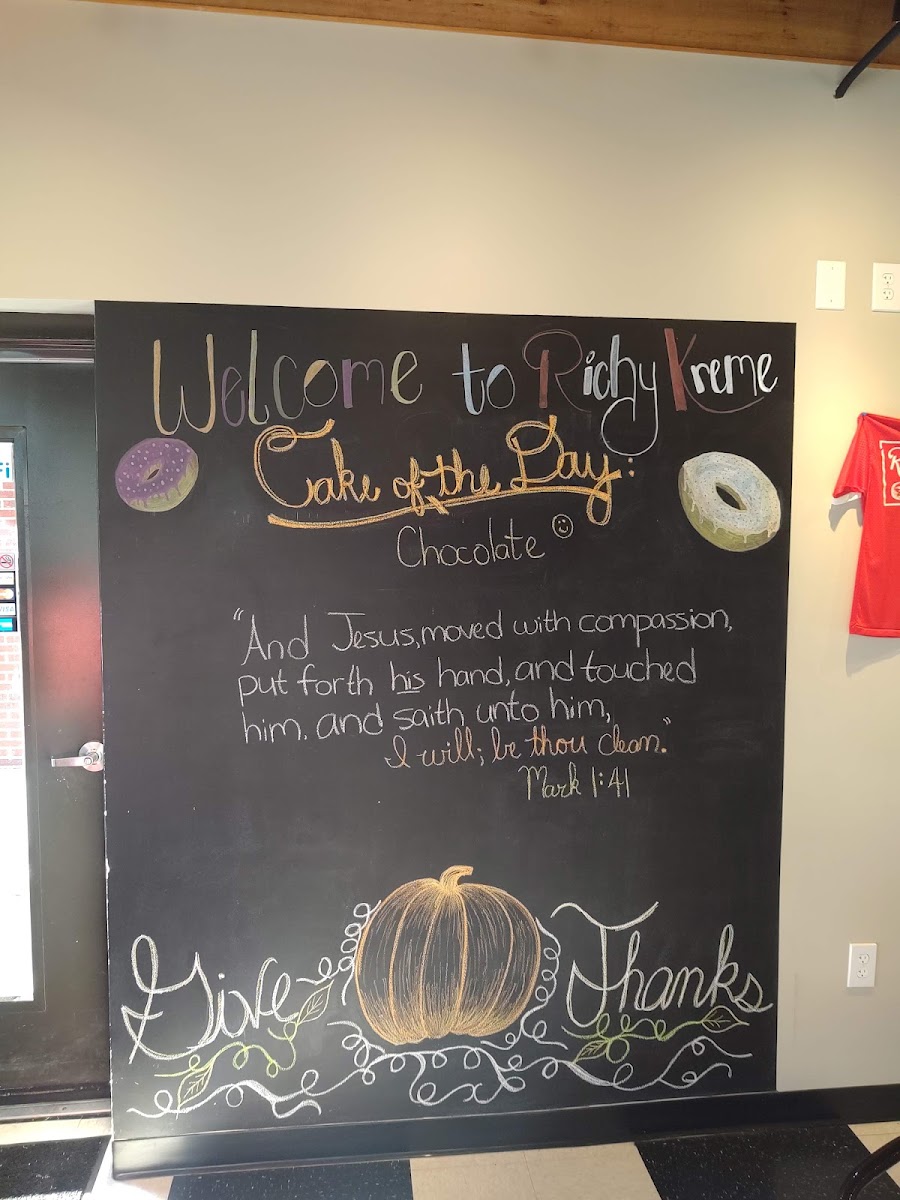 Welcome to Richy Kreme
Cake of the Day:
Chocolate
"And Jesus, moved with compassion,
put forth his hand, and touched
him. and saith unto him,
I will; be thou clean."
Mark 1:41
Give Thanks
VISA